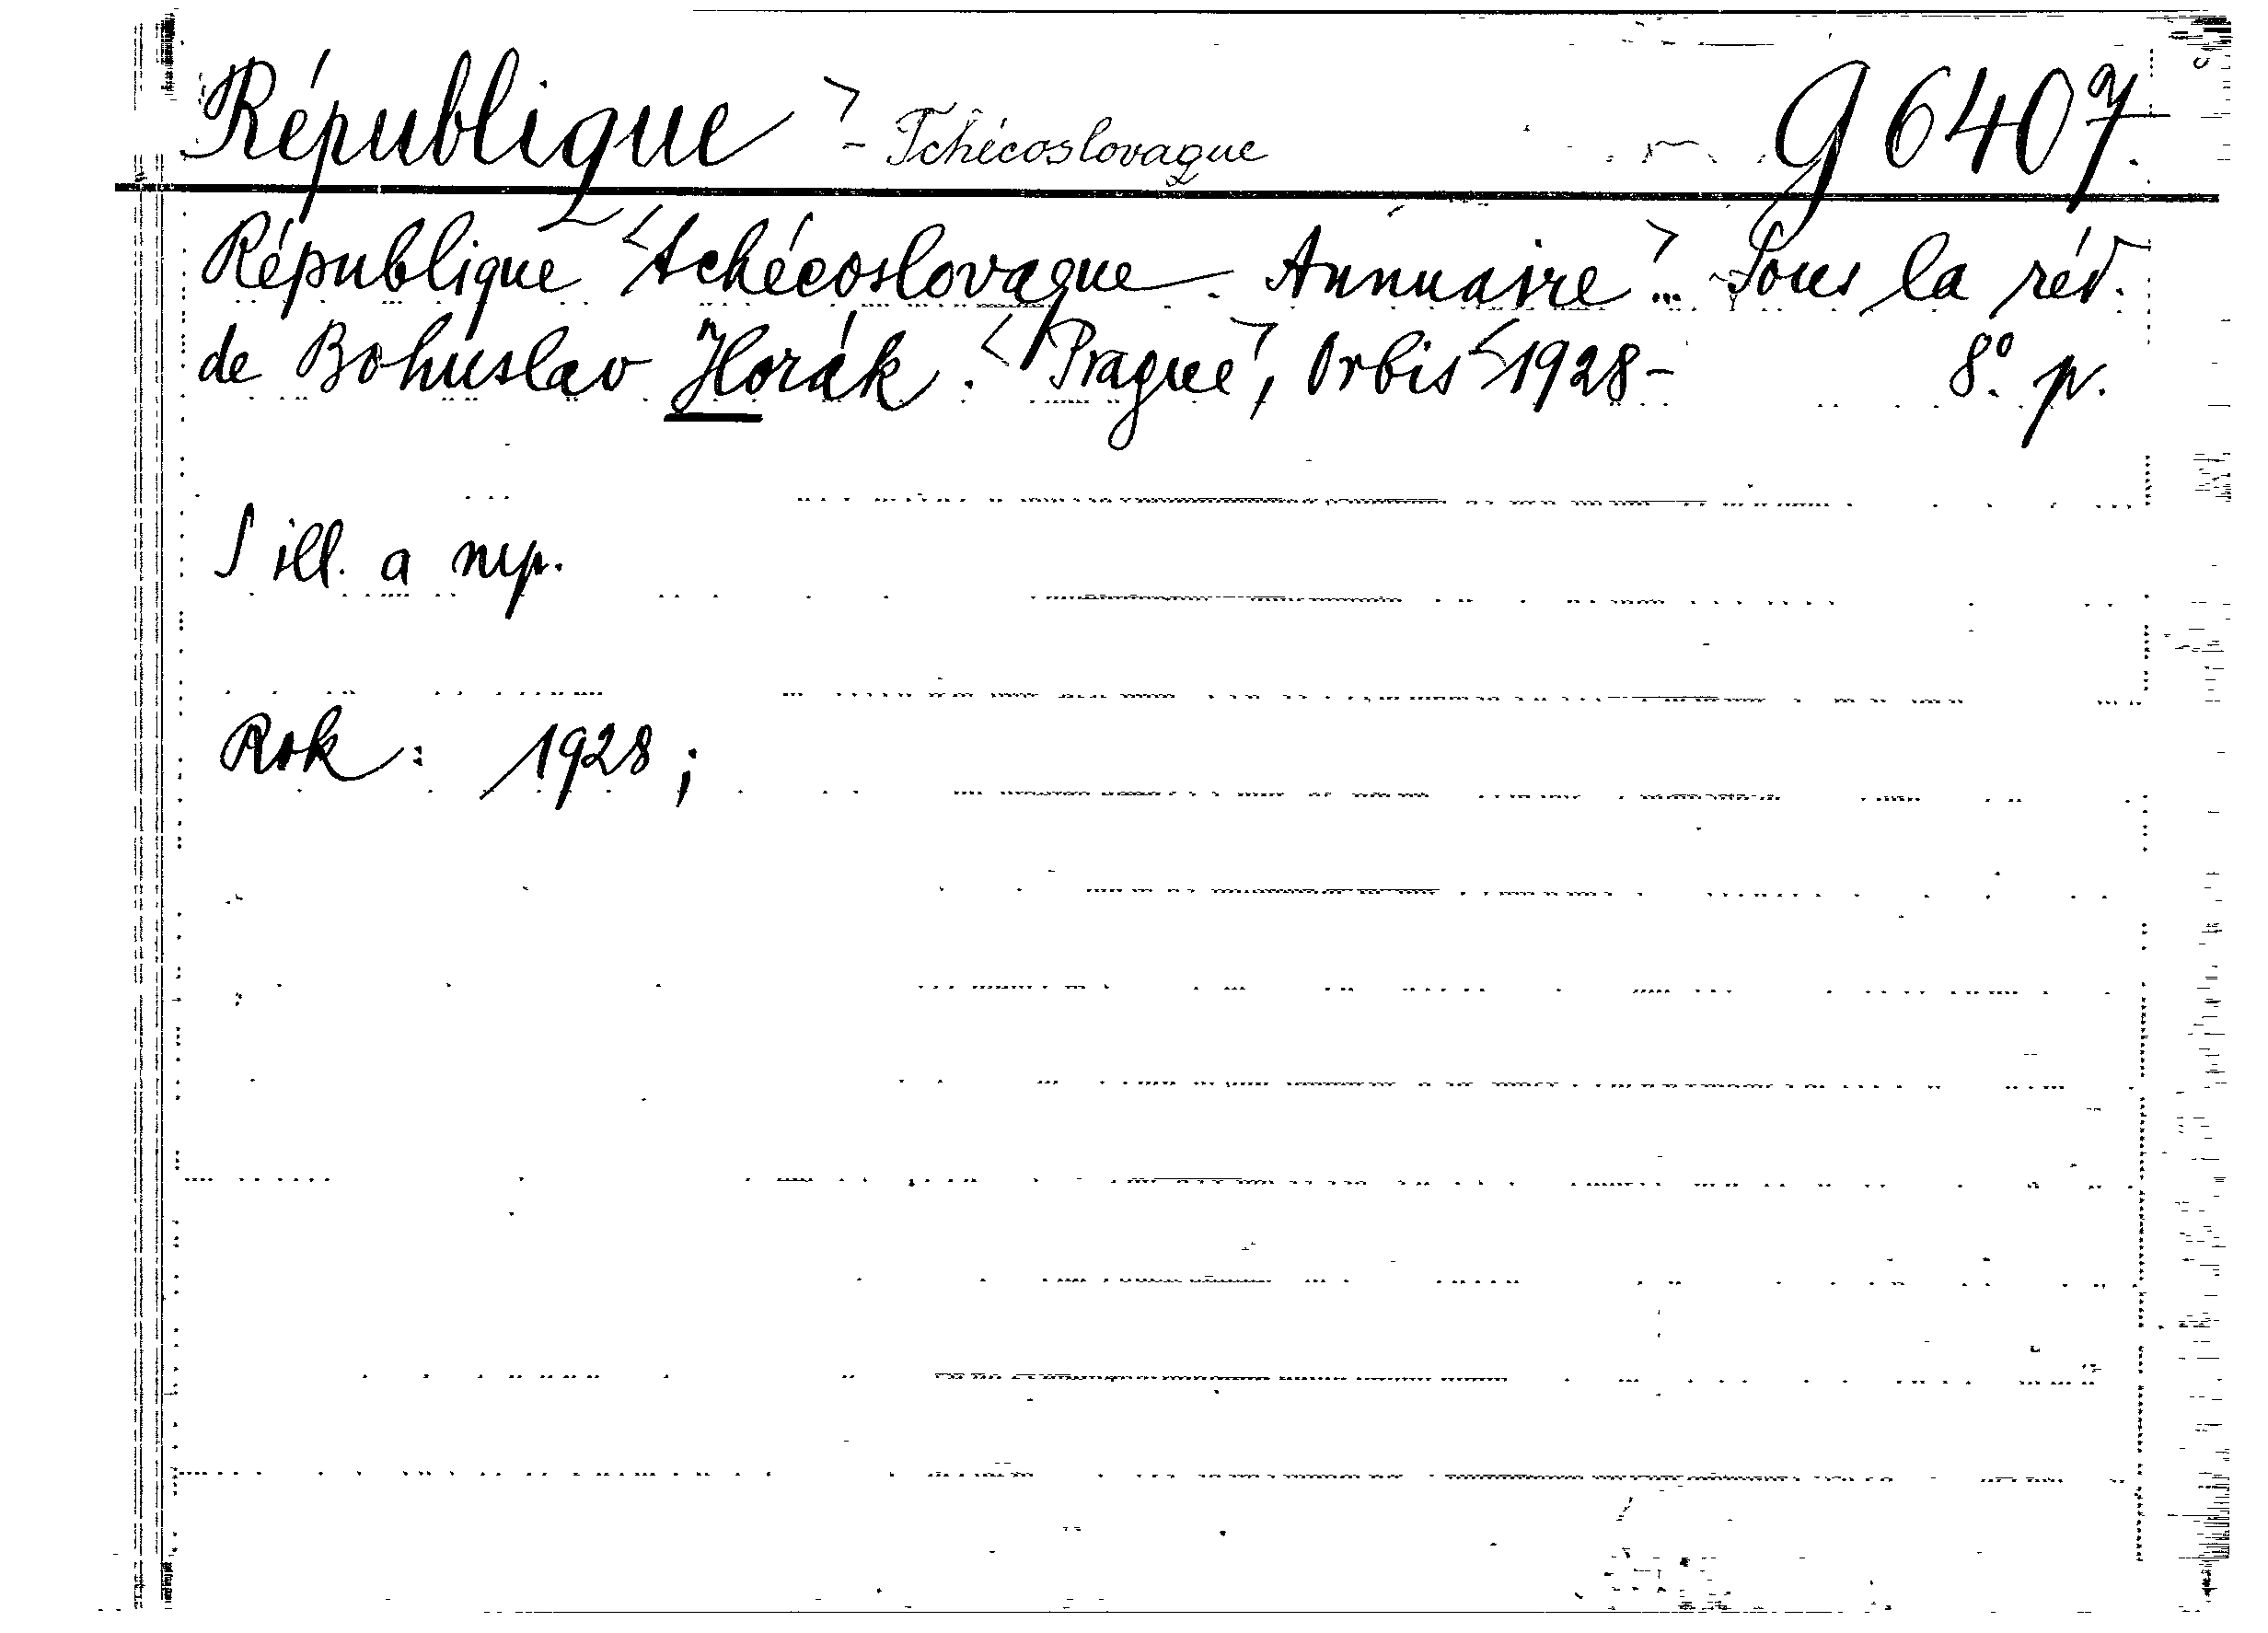 République > - Tchécoslovaque G 6407.
République <tchécoslovaque. Annuaire>... Sous la réd.
de Bohuslav Horák. <Prague>, Orbis <1928- 8° p.
S ill. a mp.
Rok: 1928;